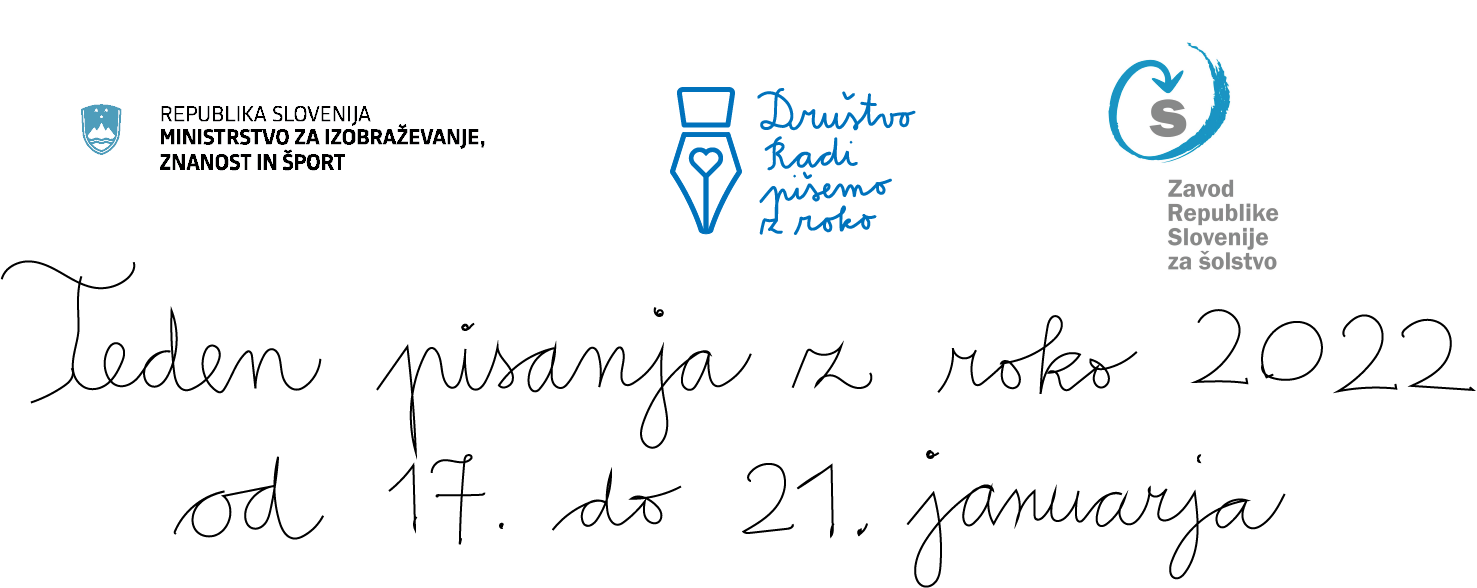 REPUBLIKA SLOVENIJA
MINISTRSTVO ZA IZOBRAŽEVANJE,
ZNANOST IN ŠPORT
Društvo
Radi
pišemo
z roko
S
Zavod
Republike
Slovenije
za šolstvo
Teden pisanja z roko 2022
od 17. do 21. januarja